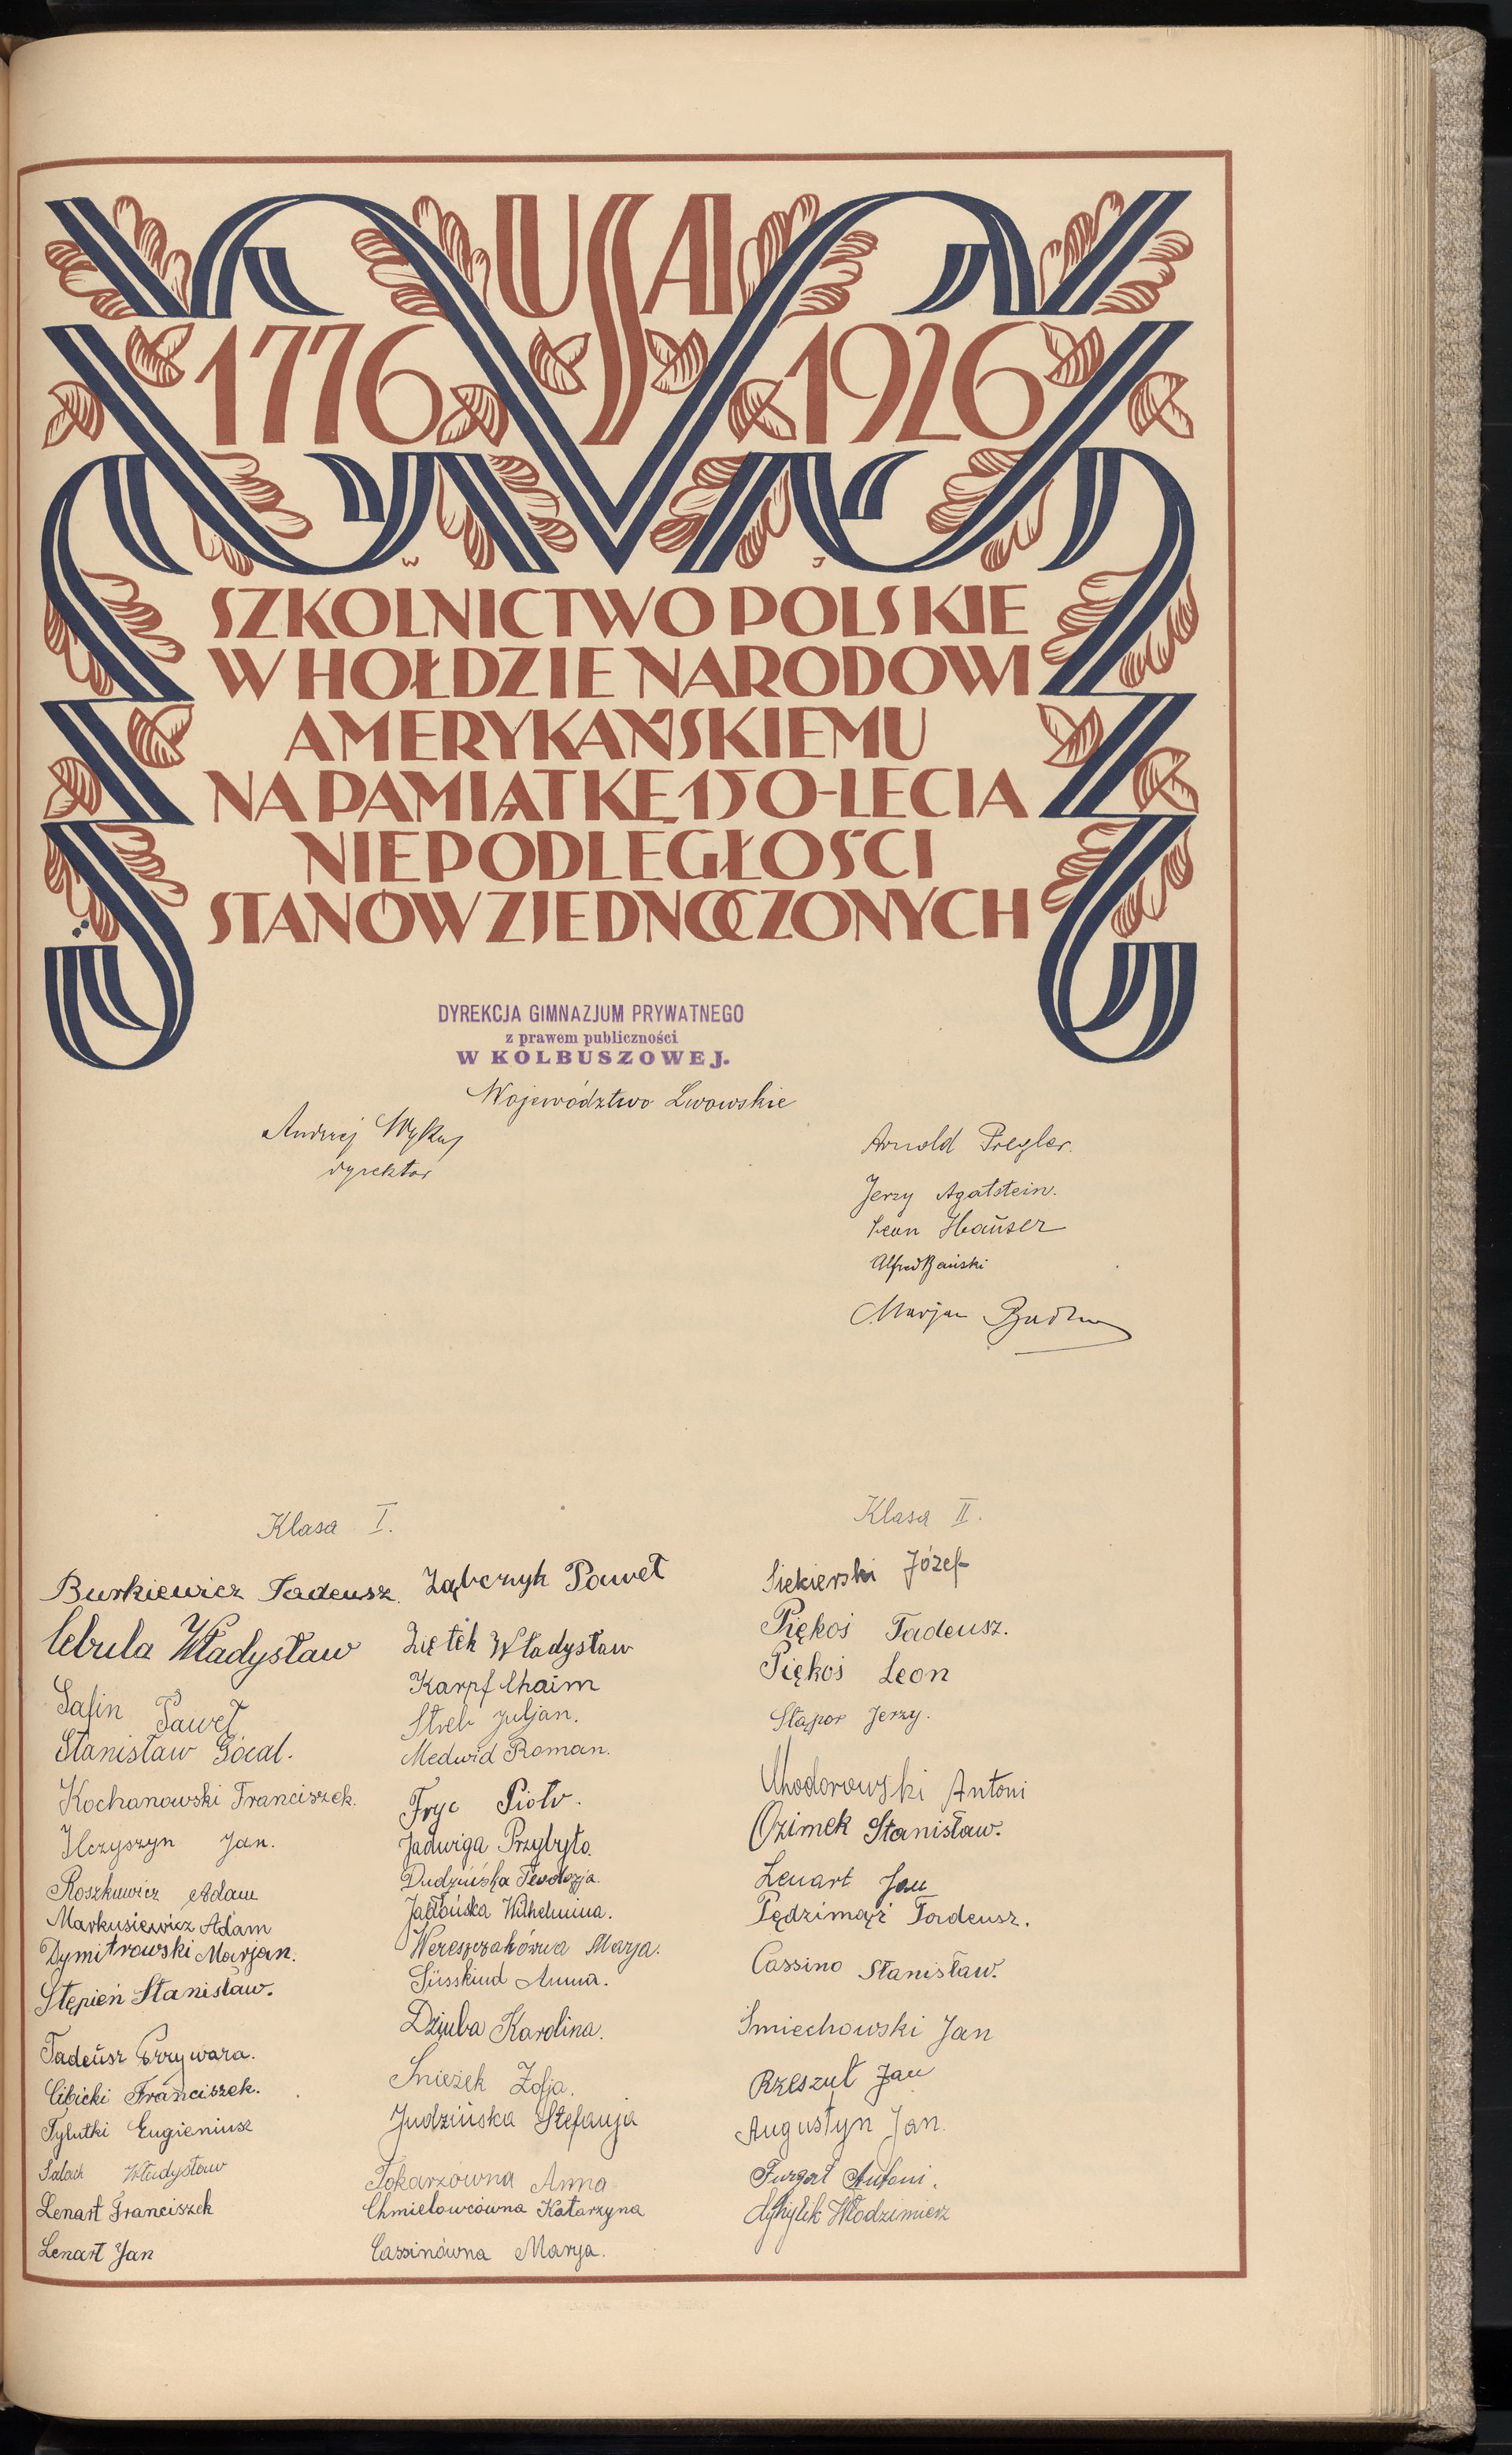 USA
1776 1926
W J
SZKOLNICTWO POLSKIE
W HOŁDZIE NARODOWI
AMERYKAŃSKIEMU
NA PAMIĄTKĘ 150-LECIA
NIEPODLEGŁOŚCI
STANÓW ZJEDNOCZONYCH
DYREKCJA GIMNAZJUM PRYWATNEGO
z prawem publiczności
W KOLBUSZOWEJ.
Województwo Lwowskie
Andrzej
dyrektor
Arnold Pregler.
Jerzy Agatstein.
Leon Hauser
Alfred Bański
Marjan
Klasa I.
Burkiewicz Tadeusz.
Cebula Władysław
Safin Paweł
Stanisław Gócal.
Kochanowski Franciszek.
Ilczyszyn Jan.
Roszkiewicz Adam
Markusiewicz Adam
Dymitrowski Marjan.
Stępień Stanisław.
Tadeusz Przywara.
Cibicki Franciszek.
Tylutki Eugieniusz
Salach Władysław
Lenart Franciszek
Lenart Jan
Ząbczyk Paweł
Ziętek Władysław
Karpf Chaim
Streb Juljan.
Medwid Roman.
Fryc Piotr.
Jadwiga Przybyło.
Dudzińska Teodozja.
Jabłońska Wilhelmina.
Wereszczakówna Marja.
Süsskind Anna.
Dziuba Karolina.
Śnieżek Zofja.
Judzińska Stefanja
Tokarzówna Anna
Chmielowcówna Katarzyna
Cassinówna Marja.
Klasa II.
Siekierski Józef
Piękoś Tadeusz.
Piękoś Leon
Stąpor Jerzy.
Chodorowski Antoni
Ozimek Stanisław.
Lenart Jan
Pędzimąż Tadeusz.
Cassino Stanisław.
Śmiechowski Jan
Rzeszut Jan
Augustyn Jan.
Furgał Antoni.
Włodzimierz